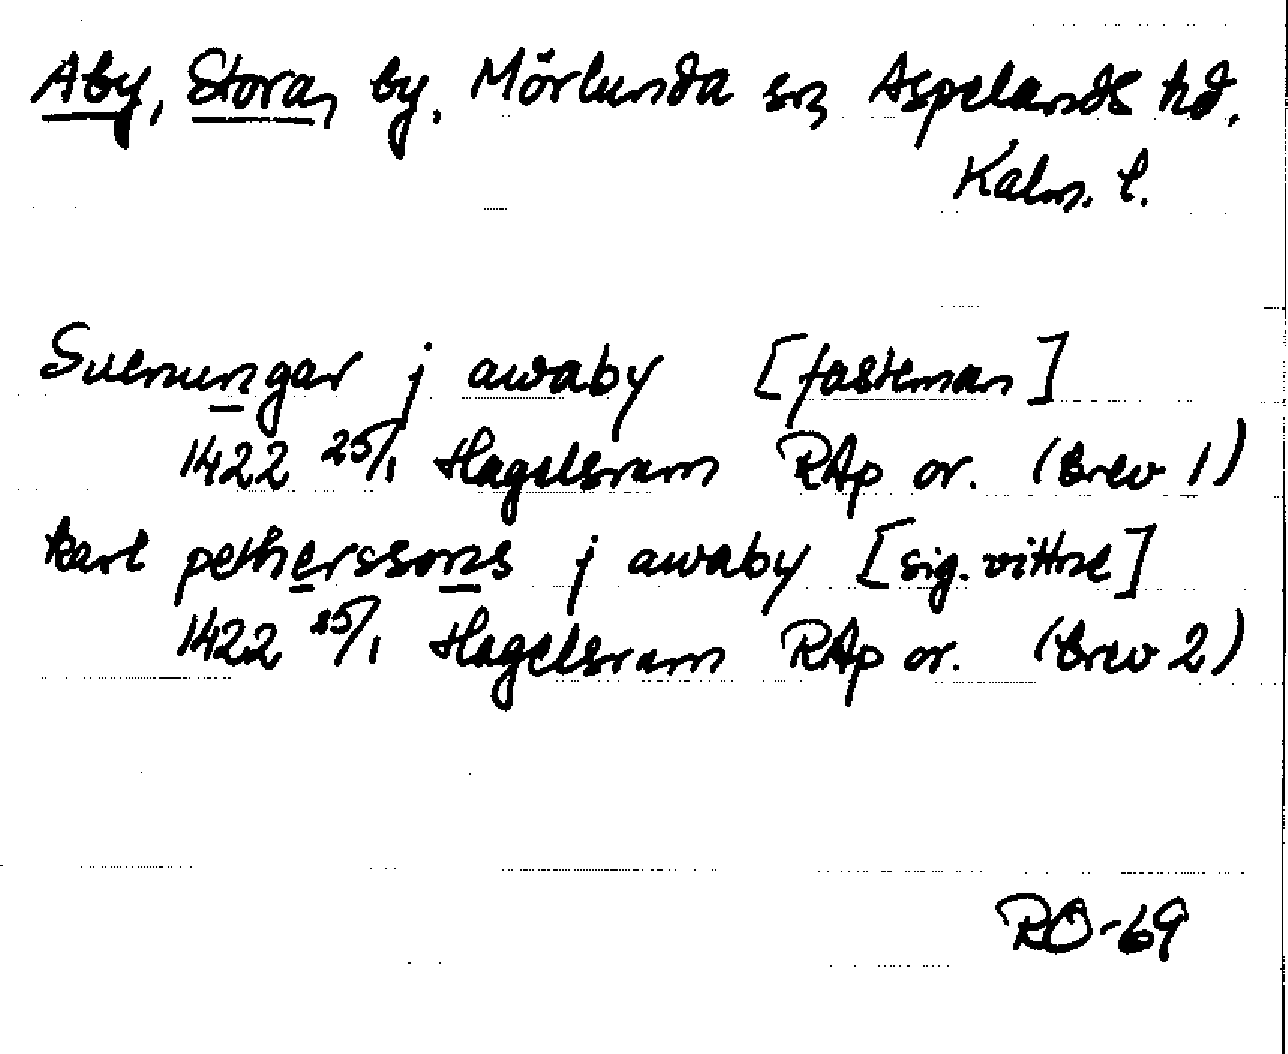 Aby, Stora, by, Mörlunda sn, Aspelands hd.
Kalm. l.
Svenungar j awaby [fasteman]
1422 25/1 Hagelsrum RAp or. (brev 1)
karl petherssons j awaby [sig. vittne]
1422 25/1 Hagelsrum RAp or. (brev 2)
RO-69